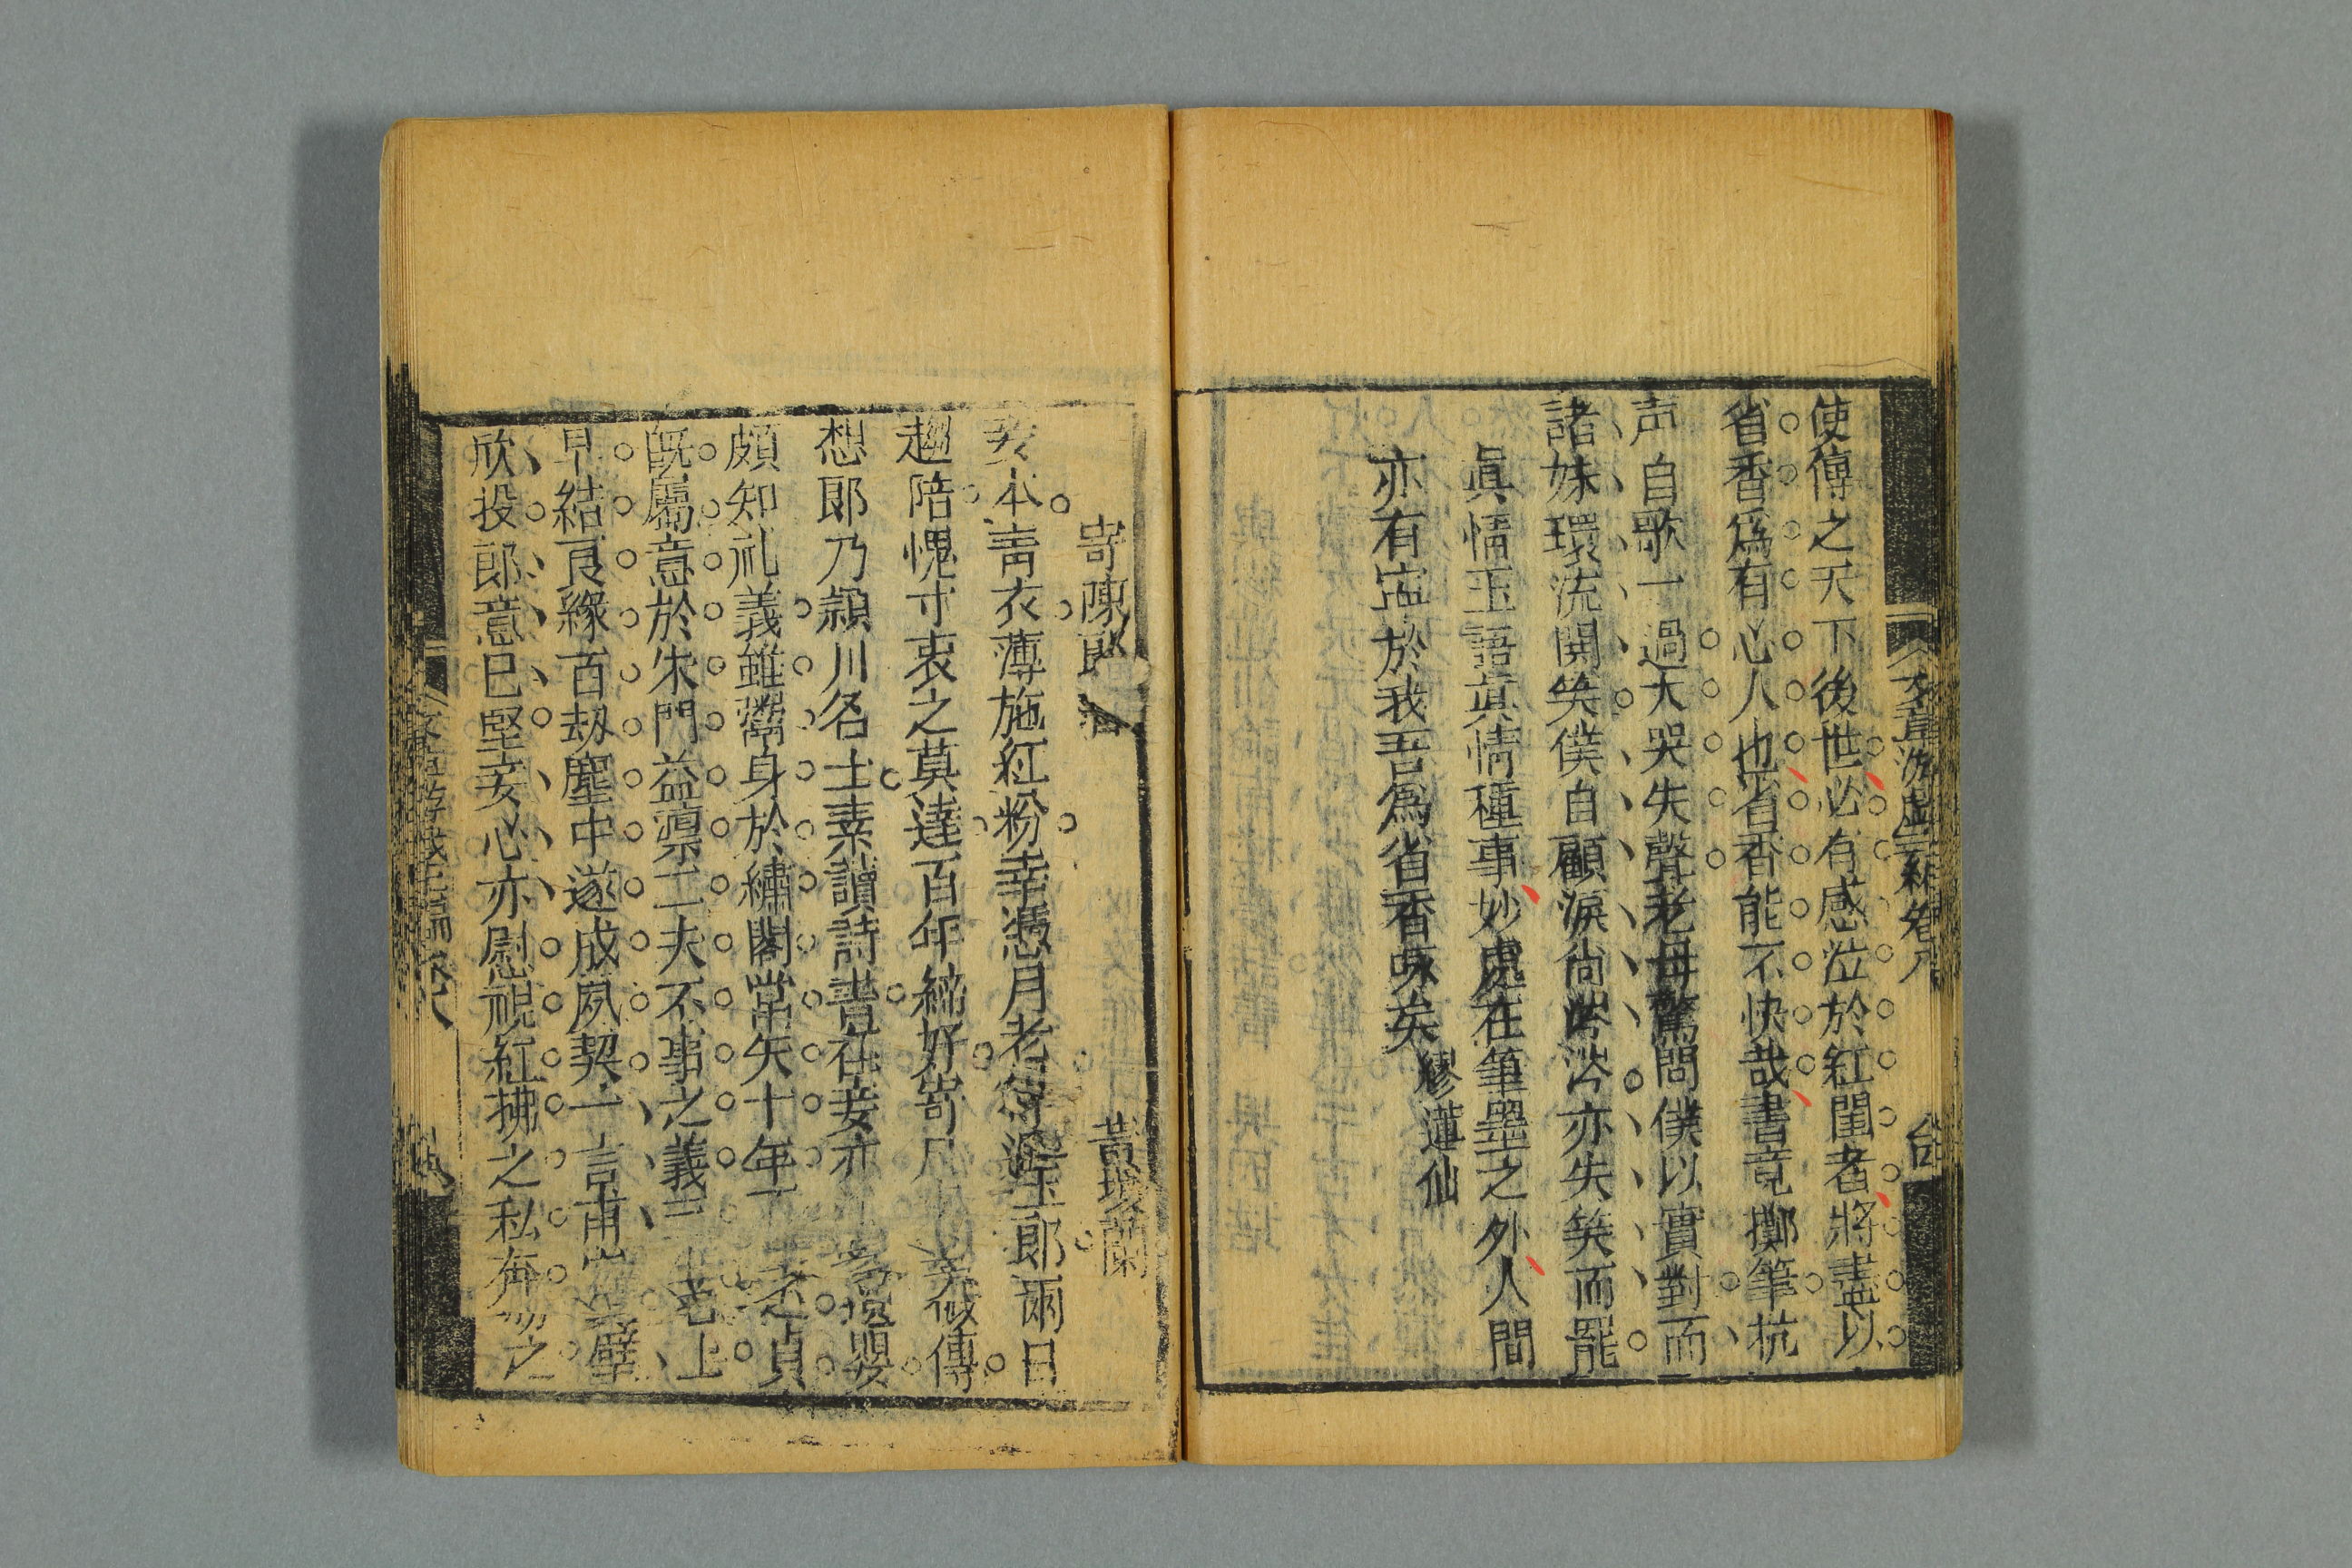 使傳之天下後世必有感泣於紅閨者將盡以
省香爲有心人也省香能不快哉書竟擲筆抗
声自歌一過大哭失聲老母驚問僕以實對而
諸妹環流開笑僕自顧淚尚涔涔亦失笑而罷
眞情玉語眞情種事妙處在筆墨之外人間
亦有寔於我吾爲省香哭矣
繆蓮仙
寄陳郎
黃壎蘭
妾本青衣薄施紅粉幸憑月老得選玉郎兩日
趨陪愧寸衷之莫達百年締好寄尺 美微傳
想郎乃潁川名士素讀詩書在妾亦 愧嬰
頗知礼義雖鬻身於繡閣常矢十年 之貞
既屬意於朱門益凛二夫不事之義三 上
早結良緣百刼塵中遂成夙契一言甫 雙璧
欣投郎意已堅妾心亦慰視紅拂之私奔 之